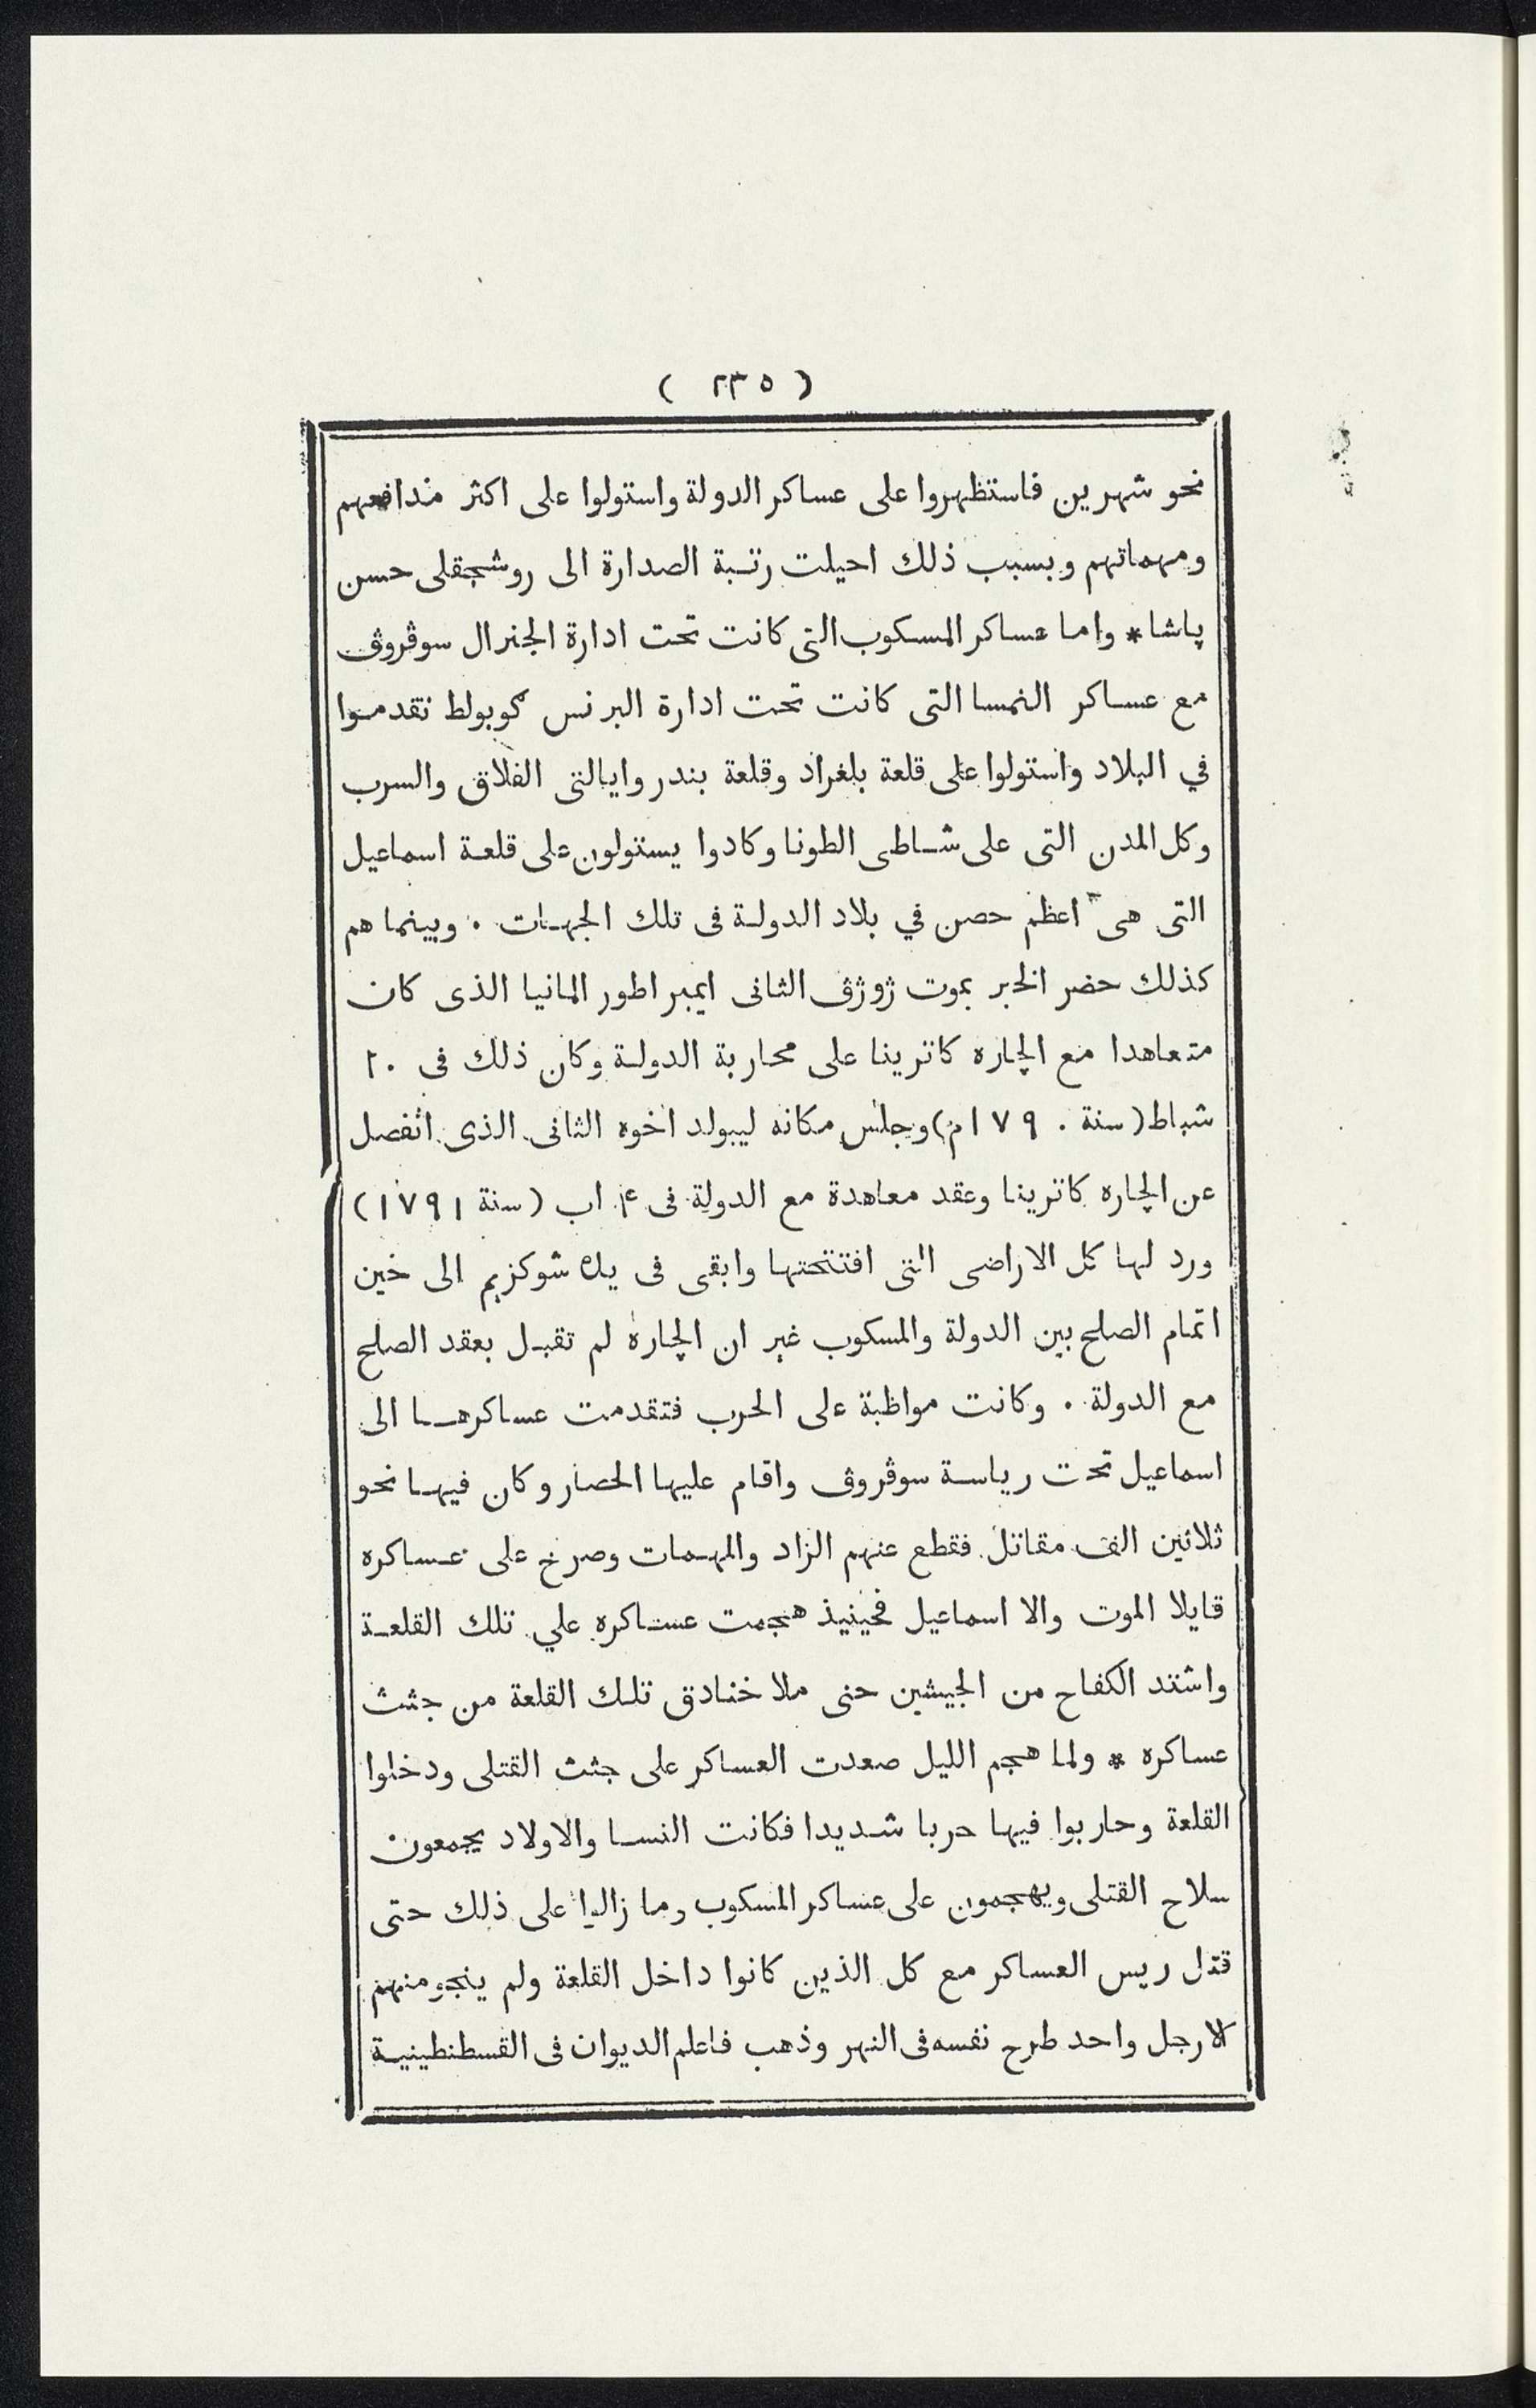 ( ٢٣٥ )
نحو شهرين فاستظهروا على عساكر الدولة واستولوا على اكثر مدافعهم
ومهماتهم وبسبب ذلك احيلت رتبة الصدارة الى روشجقلى حسن
پاشا * واما عساكر المسكوب التى كانت تحت ادارة الجنرال سوڤروڤ
مع عساكر النمسا التى كانت تحت ادارة البرنس كوبولط تقدموا
في البلاد واستولوا على قلعة بلغراد وقلعة بندر وايالتى الفلاق والسرب
وكل المدن التى على شاطى الطونا وكادوا يستولون على قلعة اسماعيل
التى هى اعظم حصن في بلاد الدولة فى تلك الجهات . وبينما هم
كذلك حضر الخبر بموت ژوژڤ الثانى ايمبراطور المانيا الذى كان
متعاهدا مع الچاره كاترينا على محاربة الدولة وكان ذلك فى ٢٠
شباط (سنة ١٧٩٠م) وجلس مكانه ليبولد اخوه الثانى الذى انفصل
عن الچاره كاترينا وعقد معاهدة مع الدولة فى ٤ اب (سنة ١٧٩١)
ورد لها كل الاراضى التى افتتحتها وابقى فى يده شوكزيم الى حين
اتمام الصلح بين الدولة والمسكوب غير ان الچاره لم تقبل بعقد الصلح
مع الدولة . وكانت مواظبة على الحرب فتقدمت عساكرها الى
اسماعيل تحت رياسة سوڤروڤ واقام عليها الحصار وكان فيها نحو
ثلاثين الف مقاتل فقطع عنهم الزاد والمهمات وصرخ على عساكره
قايلا الموت والا اسماعيل فحينيذ هجمت عساكره علي تلك القلعة
واشتد الكفاح من الجيشين حتى ملا خنادق تلك القلعة من جثث
عساكره * ولما هجم الليل صعدت العساكر على جثث القتلى ودخلوا
القلعة وحاربوا فيها حربا شديدا فكانت النسا والاولاد يجمعون
سلاح القتلى ويهجمون على عساكر المسكوب وما زالوا على ذلك حتى
قتل ريس العساكر مع كل الذين كانوا داخل القلعة ولم ينجو منهم
الا رجل واحد طرح نفسه فى النهر وذهب فاعلم الديوان فى القسطنطينية